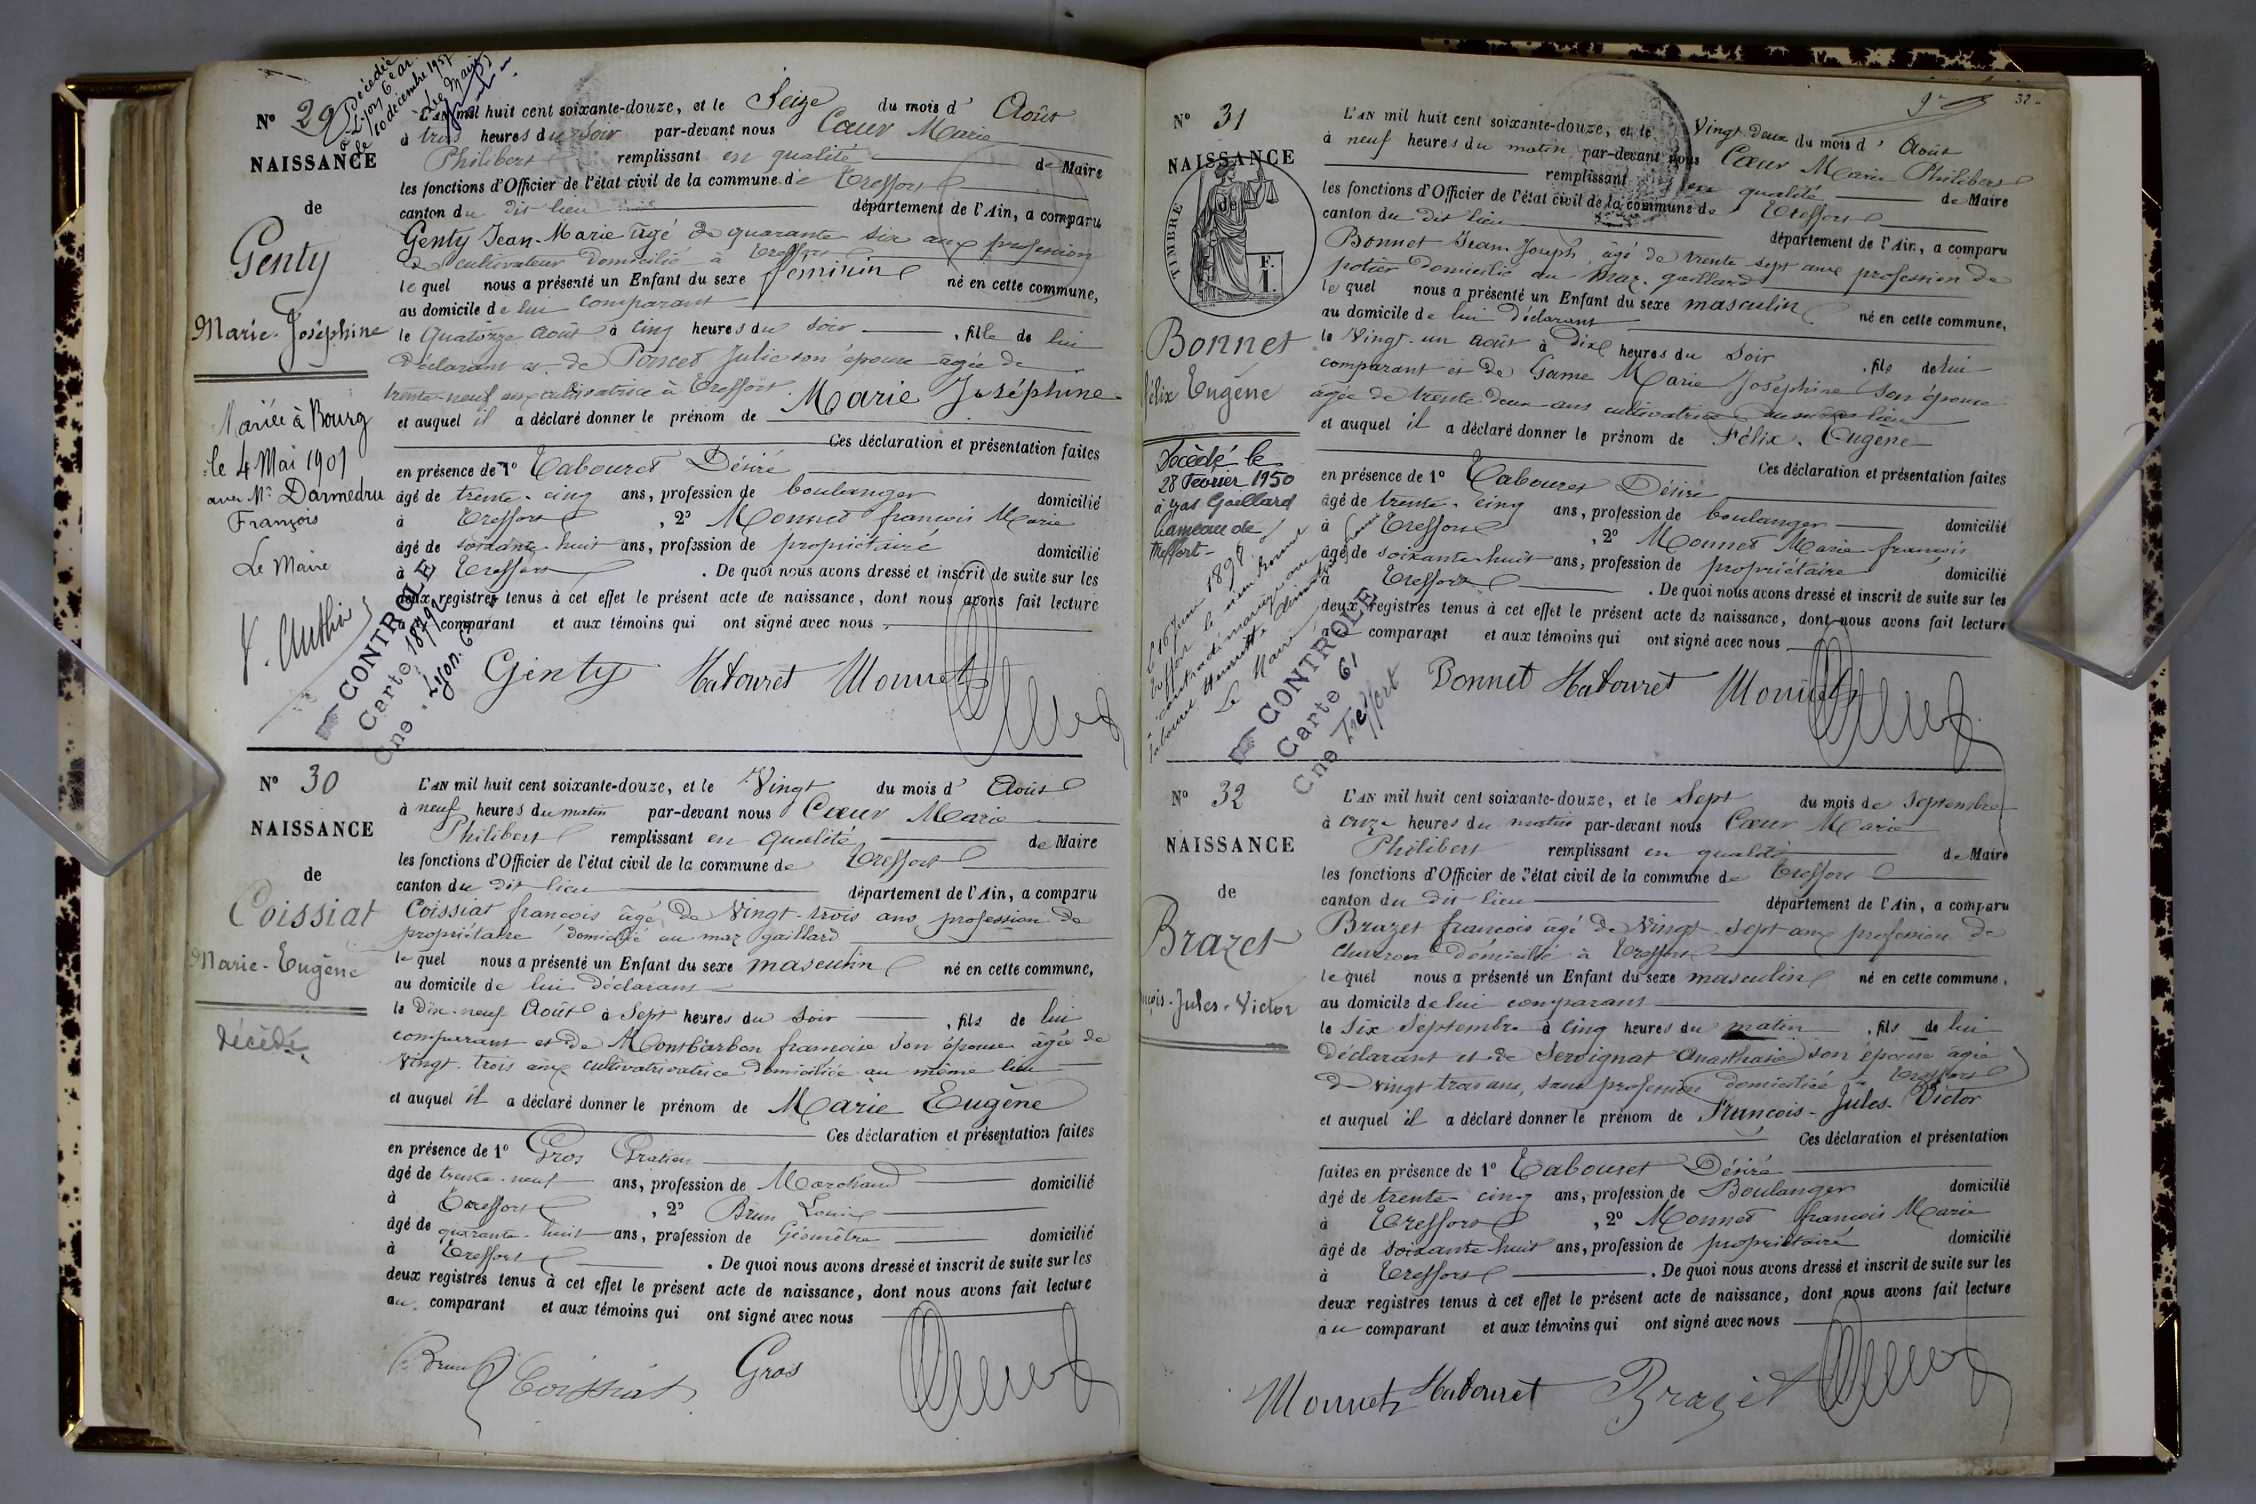 Décédée
à Lyon 6e ar.
le 10 décembre 1957
Le Maire
No 29
NAISSANCE
de
Genty
Marie-Joséphine
Mariée à Bourg
le 4 Mai 1901
avec Mr Darmedru
François
Le Maire
CONTROLE
Carte 1872
Cne Lyon 6e
L'AN mil huit cent soixante-douze, et le Seize du mois d' Août
à trois heures du soir par-devant nous Cœur Marie
Philibert remplissant en qualité de Maire
les fonctions d'Officier de l'état civil de la commune de Treffort
canton du dit lieu département de l'Ain, a comparu
Genty Jean-Marie âgé de quarante six ans profession
de cultivateur domicilié à Treffort
lequel nous a présenté un Enfant du sexe féminin né en cette commune,
au domicile de lui comparant
le Quatorze Août à Cinq heures du soir , fille de lui
Déclarant et de Poncet Julie son épouse âgée de
trente-neuf ans cultivatrice à Treffort
et auquel il a déclaré donner le prénom de Marie Joséphine
Ces déclaration et présentation faites
en présence de 1o Tabouret Désiré
âgé de trente-cinq ans, profession de boulanger domicilié
à Treffort , 2o Monnet françois Marie
âgé de soixante-huit ans, profession de propriétaire domicilié
à Treffort . De quoi nous avons dressé et inscrit de suite sur les
deux registres tenus à cet effet le présent acte de naissance, dont nous avons fait lecture
comparant et aux témoins qui ont signé avec nous
Genty Tabouret Monnet
No 30
NAISSANCE
de
Coissiat
Marie-Eugène
Décédé
L'AN mil huit cent soixante-douze, et le Vingt du mois d' Août
à neuf heures du matin par-devant nous Cœur Marie
Philibert remplissant en qualité de Maire
les fonctions d'Officier de l'état civil de la commune de Treffort
canton du dit lieu département de l'Ain, a comparu
Coissiat françois âgé de Vingt-trois ans profession de
propriétaire domicilié au maz gaillard
lequel nous a présenté un Enfant du sexe masculin né en cette commune,
au domicile de lui déclarant
le Dix-neuf Août à Sept heures du soir , fils de lui
comparant et de Montbarbon françoise son épouse âgée de
Vingt-trois ans cultivatrivatrice domiciliée au même lieu
et auquel il a déclaré donner le prénom de Marie Eugène
Ces déclaration et présentation faites
en présence de 1o Gros Gratien
âgé de trente-neuf ans, profession de Marchand domicilié
à Treffort , 2o Brun Louis
âgé de quarante-huit ans, profession de Géomètre domicilié
à Treffort . De quoi nous avons dressé et inscrit de suite sur les
deux registres tenus à cet effet le présent acte de naissance, dont nous avons fait lecture
au comparant et aux témoins qui ont signé avec nous
Brun Coissiat Gros
32
No 31
NAISSANCE
de
TIMBRE
F.
1.
Bonnet
Félix Eugène
Décédé le
28 Février 1950
à Mas Gaillard
hameau de
Treffort
Le 16 Juin 1898
Le Maire
CONTROLE
Carte 61
Cne Treffort
L'AN mil huit cent soixante-douze, et le Vingt deux du mois d' Août
à neuf heures du matin par-devant nous Cœur Marie Philibert
remplissant en qualité de Maire
les fonctions d'Officier de l'état civil de la commune de Treffort
canton du dit lieu département de l'Ain, a comparu
Bonnet Jean-Joseph, âgé de trente sept ans profession de
potier domicilié au maz-gaillard
lequel nous a présenté un Enfant du sexe masculin né en cette commune,
au domicile de lui Déclarant
le Vingt-un Août à Dix heures du Soir , fils de lui
comparant et de Game Marie Joséphine son épouse
âgée de trente-deux ans cultivatrice au même lieu
et auquel il a déclaré donner le prénom de Félix-Eugène
Ces déclaration et présentation faites
en présence de 1o Tabouret Désiré
âgé de trente-cinq ans, profession de boulanger domicilié
à Treffort , 2o Monnet Marie françois
âgé de soixante huit ans, profession de propriétaire domicilié
à Treffort . De quoi nous avons dressé et inscrit de suite sur les
deux registres tenus à cet effet le présent acte de naissance, dont nous avons fait lecture
au comparant et aux témoins qui ont signé avec nous
Bonnet Tabouret Monnet
No 32
NAISSANCE
de
Brazet
François-Jules-Victor
L'AN mil huit cent soixante-douze, et le Sept du mois de Septembre
à onze heures du matin par-devant nous Cœur Marie
Philibert remplissant en qualité de Maire
les fonctions d'Officier de l'état civil de la commune de Treffort
canton du dit lieu département de l'Ain, a comparu
Brazet françois âgé de Vingt-sept ans profession de
charron domicilié à Treffort
lequel nous a présenté un Enfant du sexe masculin né en cette commune,
au domicile de lui comparant
le Six Septembre à Cinq heures du matin , fils de lui
Déclarant et de Servignat Anasthasie son épouse âgée
de vingt trois ans, sans profession domiciliée à Treffort
et auquel il a déclaré donner le prénom de François-Jules-Victor
Ces déclaration et présentation
faites en présence de 1o Tabouret Désiré
âgé de trente-cinq ans, profession de Boulanger domicilié
à Treffort , 2o Monnet françois Marie
âgé de soixante huit ans, profession de propriétaire domicilié
à Treffort . De quoi nous avons dressé et inscrit de suite sur les
deux registres tenus à cet effet le présent acte de naissance, dont nous avons fait lecture
au comparant et aux témoins qui ont signé avec nous
Monnet Tabouret Brazet